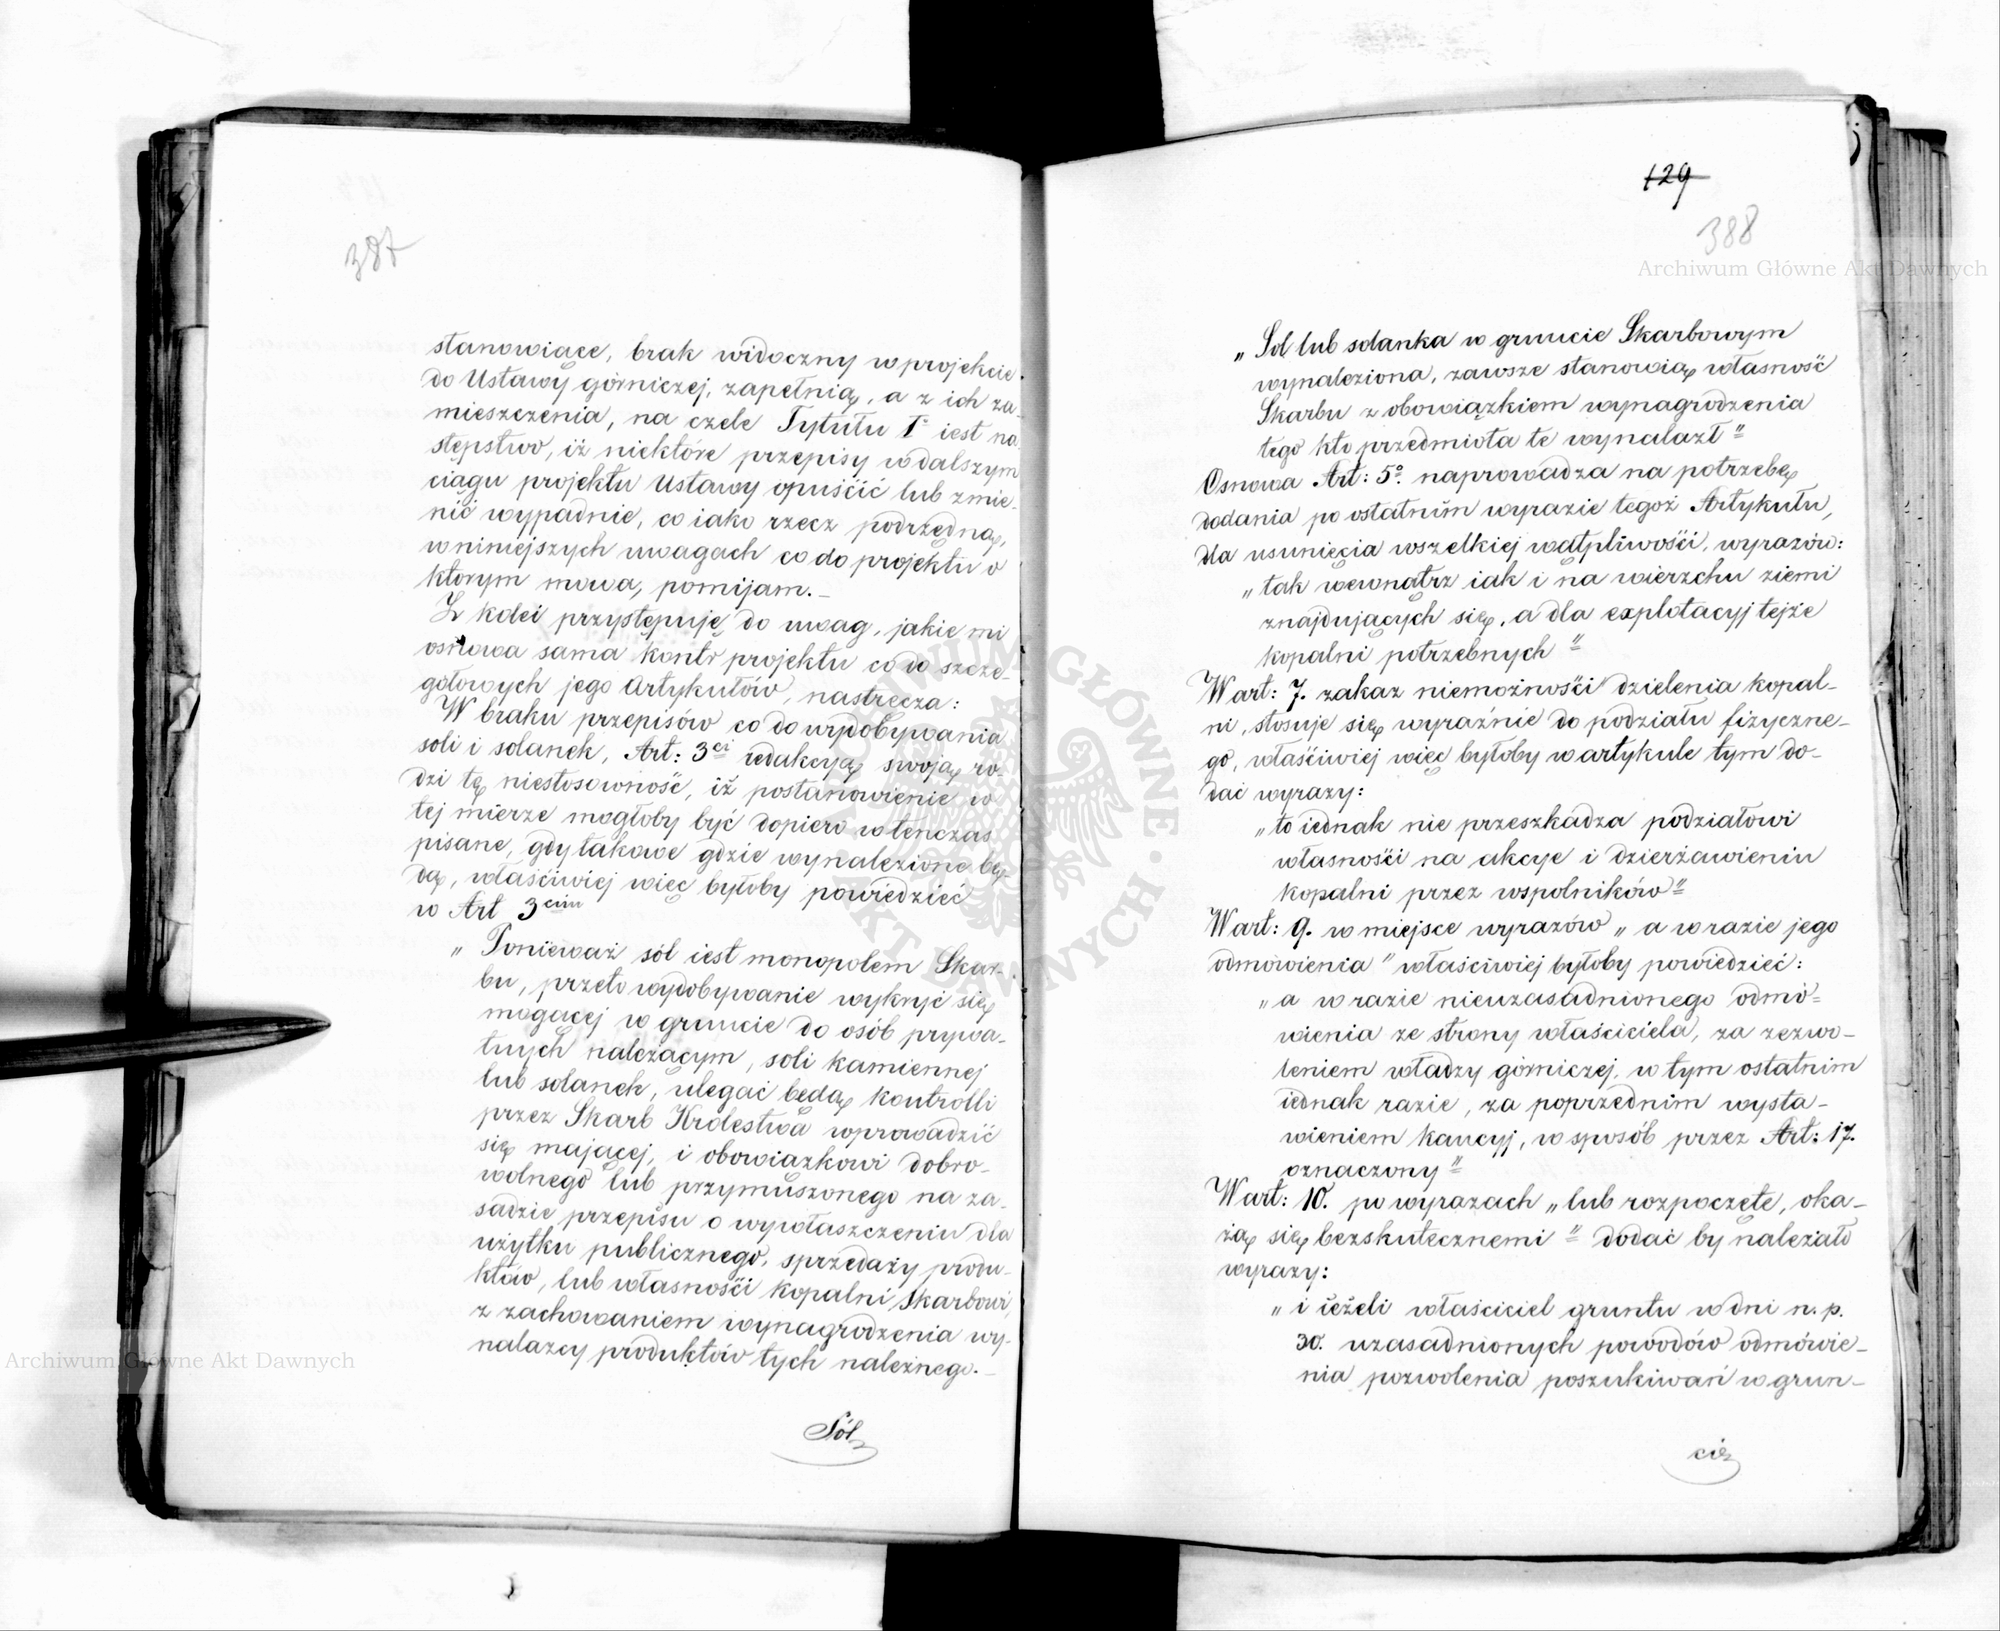 387
stanowiące, brak widoczny w projekcie
do Ustawy górniczej, zapełnią, a z ich za-
mieszczenia, na czele Tytułu I° iest na-
stępstwo, iż niektóre przepisy w dalszym
ciągu projektu Ustawy opuścić lub zmie-
nić wypadnie, co iako rzecz podrzędną,
w niniejszych uwagach co do projektu o
którym mowa, pomijam.—
Z kolei przystępuję do uwag, jakie mi
osnowa sama kontr projektu co do szcze-
gółowych jego Artykułów, nastręcza:
W braku przepisów co do wydobywania
soli i solanek, Art: 3ci redakcyą swoją ro-
dzi tę niestosowność, iż postanowienie w
tej mierze mogłoby być dopiero wtenczas
pisane, gdy takowe gdzie wynalezione bę-
dą, właściwiej więc byłoby powiedzieć
w Art 3cim
„ Ponieważ sól iest monopolem Skar-
bu, przeto wydobywanie wykryć się
mogącej w gruncie do osób prywa-
tnych należącym, soli kamiennej
lub solanek, ulegać będą kontrolli
przez Skarb Królestwa wprowadzić
się mającej, i obowiązkowi dobro-
wolnego lub przymuszonego na za-
sadzie przepisu o wywłaszczeniu dla
użytku publicznego, sprzedaży produ-
któw, lub własności kopalni Skarbowi,
z zachowaniem wynagrodzenia wy-
nalazcy produktów tych należnego.—
Sól
129
388
„ Sol lub solanka w gruncie Skarbowym
wynaleziona, zawsze stanowią własność
Skarbu z obowiązkiem wynagrodzenia
tego kto przedmiota te wynalazł"
Osnowa Art: 5° naprowadza na potrzebę
dodania po ostatnim wyrazie tegoż Artykułu,
dla usunięcia wszelkiej wątpliwości, wyrazów:
„ tak wewnątrz iak i na wierzchu ziemi
znajdujących się, a dla explotacyj tejże
kopalni potrzebnych"
W art: 7. zakaz niemożności dzielenia kopal-
ni, stosuje się wyraźnie do podziału fizyczne-
go, właściwiej więc byłoby w artykule tym do-
dać wyrazy:
„ to iednak nie przeszkadza podziałowi
własności na akcye i dzierżawieniu
kopalni przez wspolników"
W art: 9. w miejsce wyrazów „ a w razie jego
odmówienia " właściwiej byłoby powiedzieć:
„ a w razie nieuzasadnionego odmó=
wienia ze strony właściciela, za zezwo-
leniem władzy górniczej, w tym ostatnim
iednak razie, za poprzednim wysta-
wieniem kaucyj, w sposób przez Art: 17.
oznaczony"
W art: 10. po wyrazach „ lub rozpoczęte, oka-
żą się bezskutecznemi " dodać by należało
wyrazy:
„ i ieżeli właściciel gruntu w dni n. p.
30. uzasadnionych powodów odmówie-
nia pozwolenia poszukiwań w grun-
cie
Archiwum Główne Akt Dawnych
Archiwum Główne Akt Dawnych
ARCHIWUM GŁÓWNE · AKT DAWNYCH ·